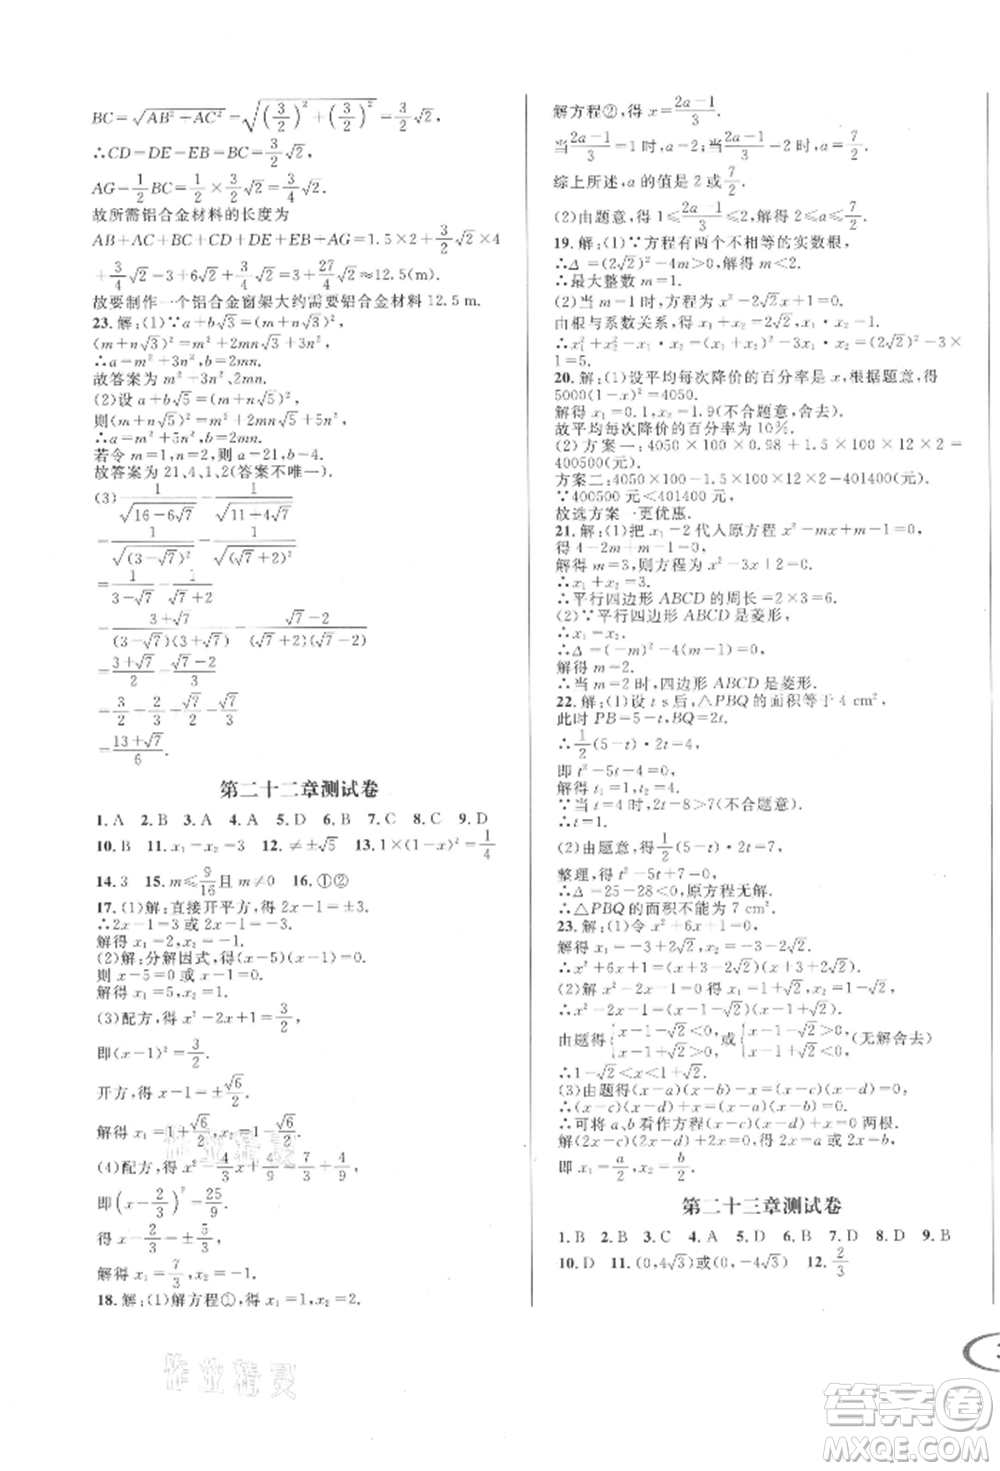 BC=√(AB²+AC²)=√((3/2)²+(3/2)²)=3/2√2.
∴CD=DE=EB=BC=3/2√2.
AG=1/2BC=1/2×3/2√2=3/4√2.
故所需铝合金材料的长度为
AB+AC+BC+CD+DE+EB+AG=1.5×2+3/2√2×4
+3/4√2=3+6√2+3/4√2=3+27/4√2≈12.5(m).
故要制作一个铝合金窗架大约需要铝合金材料 12.5 m.
23.解:(1)∵a+b√3=(m+n√3)²,
(m+n√3)²=m²+3n²+2mn√3,
∴a=m²+3n²,b=2mn.
故答案为 m²+3n²,2mn.
(2)设 a+b√5=(m+n√5)²,
则(m+n√5)²=m²+5n²+2mn√5,
∴a=m²+5n²,b=2mn.
若令 m=1,n=2,则 a=21,b=4.
故答案为 21,4,1,2(答案不唯一).
(3) 1/√(16-6√7) - 1/√(11+4√7)
=1/√((3-√7)²) - 1/√((√7+2)²)
=1/(3-√7) - 1/(√7+2)
=(3+√7)/((3-√7)(3+√7)) - (√7-2)/((√7+2)(√7-2))
=(3+√7)/2 - (√7-2)/3
=3/2+√7/2-√7/3+2/3
=(13+√7)/6.
第二十二章测试卷
1.A 2.B 3.A 4.A 5.D 6.B 7.C 8.C 9.D
10.B 11.x₁=x₂=3 12.≠±√5 13.1×(1-x)²=1/4
14.3 15.m≤9/16且 m≠0 16.①②
17.(1)解:直接开平方,得 2x-1=±3.
∴2x-1=3 或 2x-1=-3.
解得 x₁=2,x₂=-1.
(2)解:分解因式,得(x-5)(x-1)=0.
则 x-5=0 或 x-1=0.
解得 x₁=5,x₂=1.
(3)配方,得 x²-2x+1=3/2.
即(x-1)²=3/2.
开方,得 x-1=±√6/2.
解得 x₁=1+√6/2,x₂=1-√6/2.
(4)配方,得 x²-4/3x+4/9=7/3+4/9.
即(x-2/3)²=25/9.
开方,得 x-2/3=±5/3.
解得 x₁=7/3,x₂=-1.
18.解:(1)解方程①,得 x₁=1,x₂=2.
解方程②,得 x=(2a-1)/3.
当(2a-1)/3=1 时,a=2;当(2a-1)/3=2 时,a=7/2.
综上所述,a 的值是 2 或 7/2.
(2)由题意,得 1≤(2a-1)/3≤2,解得 2≤a≤7/2.
19.解:(1)∵方程有两个不相等的实数根,
∴Δ=(2√2)²-4m>0,解得 m<2.
∴最大整数 m=1.
(2)当 m=1 时,原方程为 x²-2√2x+1=0.
由根与系数关系,得 x₁+x₂=2√2,x₁·x₂=1.
∴x₁²+x₂²-x₁x₂=(x₁+x₂)²-3x₁x₂=(2√2)²-3×
1=5.
20.解:(1)设平均每次降价的百分率是 x,根据题意,得
5000(1-x)²=4050.
解得 x₁=0.1,x₂=1.9(不合题意,舍去).
故平均每次降价的百分率为 10%.
(2)方案一:4050×100×0.98+1.5×100×12×2=
400500(元).
方案二:4050×100-1.5×100×12×2=401400(元).
∵400500 元<401400 元.
故选方案一更优惠.
21.解:(1)把 x₁=2 代入原方程 x²-mx+m-1=0,
得 4-2m+m-1=0.
解得 m=3,原方程为 x²-3x+2=0.
∴x₁+x₂=3.
∴平行四边形 ABCD 的周长=2×3=6.
(2)∵平行四边形 ABCD 是菱形,
∴x₁=x₂.
∴Δ=(-m)²-4(m-1)=0.
解得 m=2.
∴当 m=2 时,四边形 ABCD 是菱形.
22.解:(1)设 t s 后,△PBQ 的面积等于 4 cm²,
此时 PB=5-t,BQ=2t.
∴1/2(5-t)·2t=4.
即 t²-5t+4=0.
解得 t₁=1,t₂=4.
∵当 t=4 时,2t=8>7(不合题意).
∴t=1.
(2)由题意,得 1/2(5-t)·2t=7,
整理,得 t²-5t+7=0.
∴Δ=25-28<0,原方程无解.
∴△PBQ 的面积不能为 7 cm².
23.解:(1)令 x²+6x+1=0,
解得 x₁=-3+2√2,x₂=-3-2√2.
∴x²+6x+1=(x+3-2√2)(x+3+2√2).
(2)解 x²-2x-1=0,得 x₁=1+√2,x₂=1-√2.
∴x²-2x-1=(x-1-√2)(x-1+√2)<0.
由题得{x-1-√2<0, x-1+√2>0 或{x-1-√2>0, x-1+√2<0.(无解舍去)
∴1-√2<x<1+√2.
(3)由题得(x-a)(x-b)-x=(x-c)(x-d).
∴(x-c)(x-d)+x=(x-a)(x-b).
∴可将 a,b 看作方程(x-c)(x-d)+x=0 两根.
解(2x-c)(2x-d)+2x=0,得 2x=a 或 2x=b.
即 x₁=a/2,x₂=b/2.
第二十三章测试卷
1.B 2.B 3.C 4.A 5.D 6.B 7.D 8.D 9.B
10.D 11.(0,4√3)或(0,-4√3) 12.2/3
作业精灵
作业精灵
答案卷
MXQE.COM